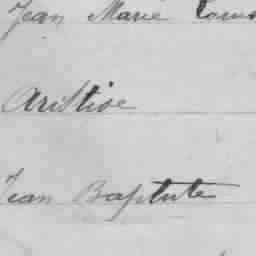 Jean Marie Louis
Aristide
Jean Baptiste